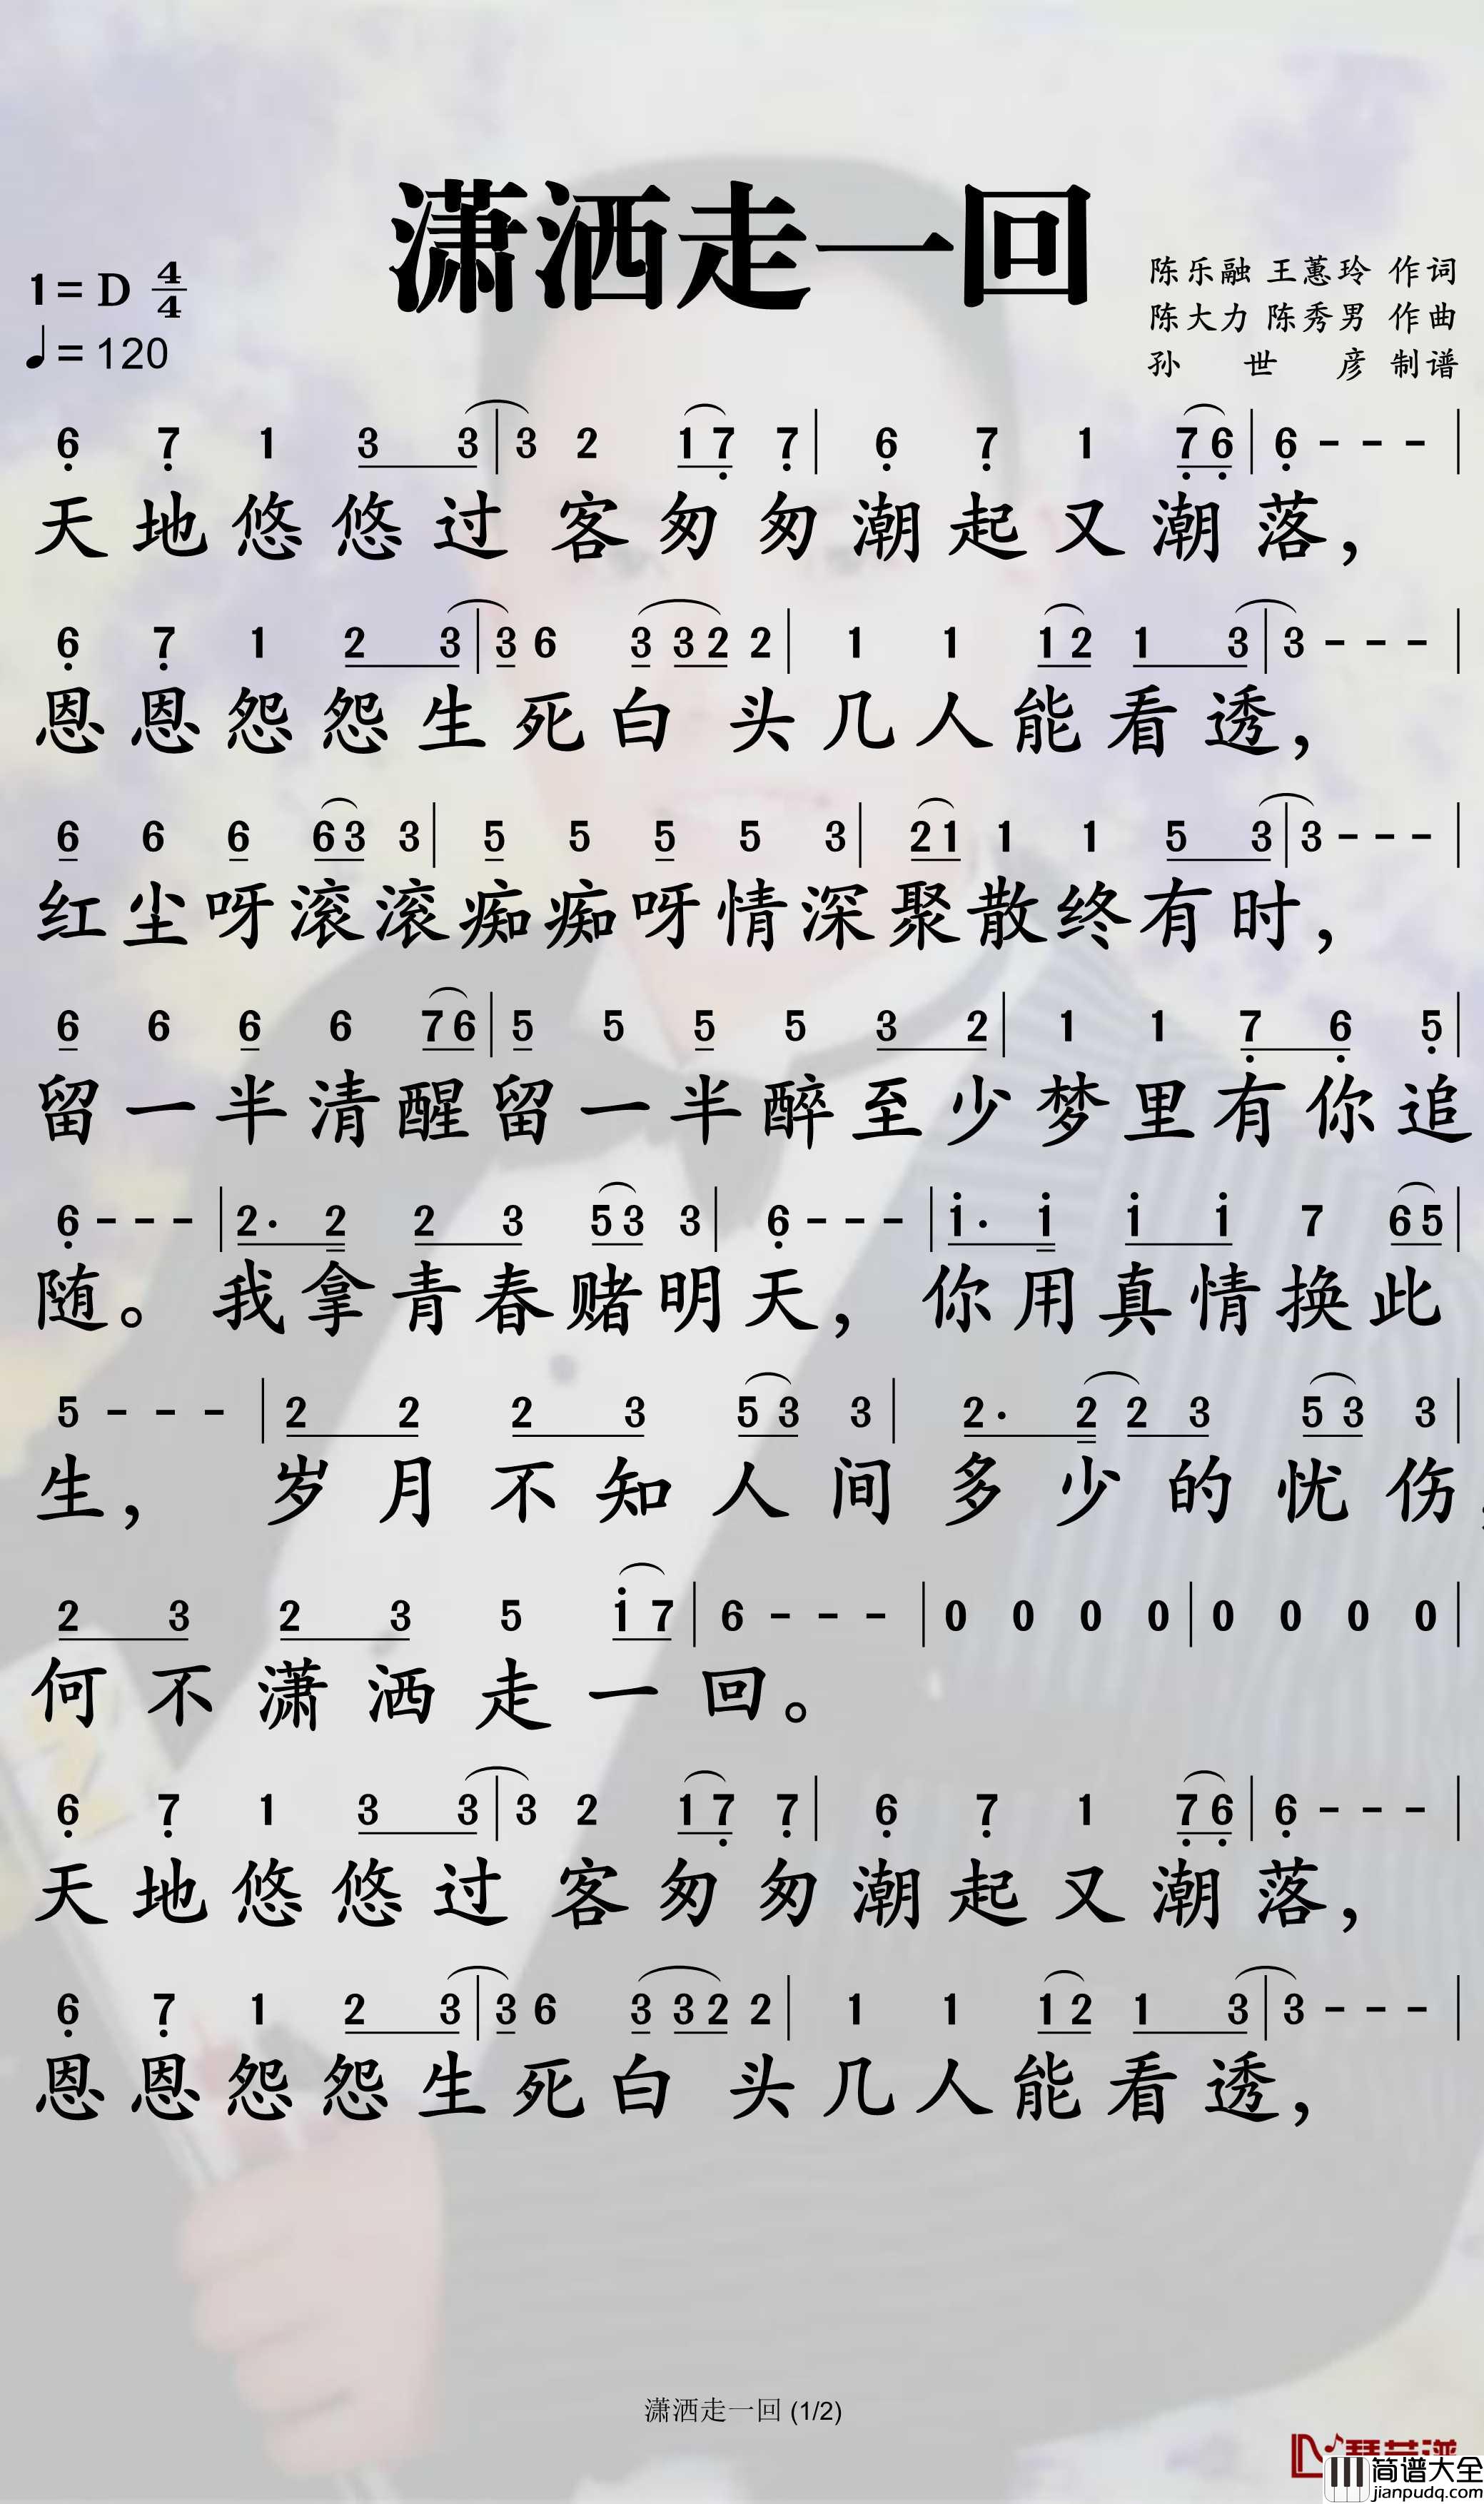 潇洒走一回
1=D 4/4
♩=120
陈乐融 王蕙玲 作词
陈大力 陈秀男 作曲
孙世彦 制谱
6̣ 7̣ 1 3 3 | 3 2 1 7̣ 7̣ | 6̣ 7̣ 1 7̣ 6̣ | 6̣ - - - |
天地悠悠过客匆匆潮起又潮落，
6̣ 7̣ 1 2 3 | 3 6 3 3 2 2 | 1 1 1 2 1 3 | 3 - - - |
恩恩怨怨生死白头几人能看透，
6 6 6 6 3 3 | 5 5 5 5 3 | 2 1 1 1 5 3 | 3 - - - |
红尘呀滚滚痴痴呀情深聚散终有时，
6 6 6 6 7 6 | 5 5 5 5 3 2 | 1 1 7̣ 6̣ 5̣ |
留一半清醒留一半醉至少梦里有你追
6̣ - - - | 2· 2 2 3 5 3 3 | 6̣ - - - | 1̇· 1̇ 1̇ 1̇ 7 6 5 |
随。我拿青春赌明天，你用真情换此
5 - - - | 2 2 2 3 5 3 3 | 2· 2 2 3 5 3 3 |
生，岁月不知人间多少的忧伤，
2 3 2 3 5 1̇ 7 | 6 - - - | 0 0 0 0 | 0 0 0 0 |
何不潇洒走一回。
6̣ 7̣ 1 3 3 | 3 2 1 7̣ 7̣ | 6̣ 7̣ 1 7̣ 6̣ | 6̣ - - - |
天地悠悠过客匆匆潮起又潮落，
6̣ 7̣ 1 2 3 | 3 6 3 3 2 2 | 1 1 1 2 1 3 | 3 - - - |
恩恩怨怨生死白头几人能看透，
潇洒走一回 (1/2)
简谱大全
jianpudq.com